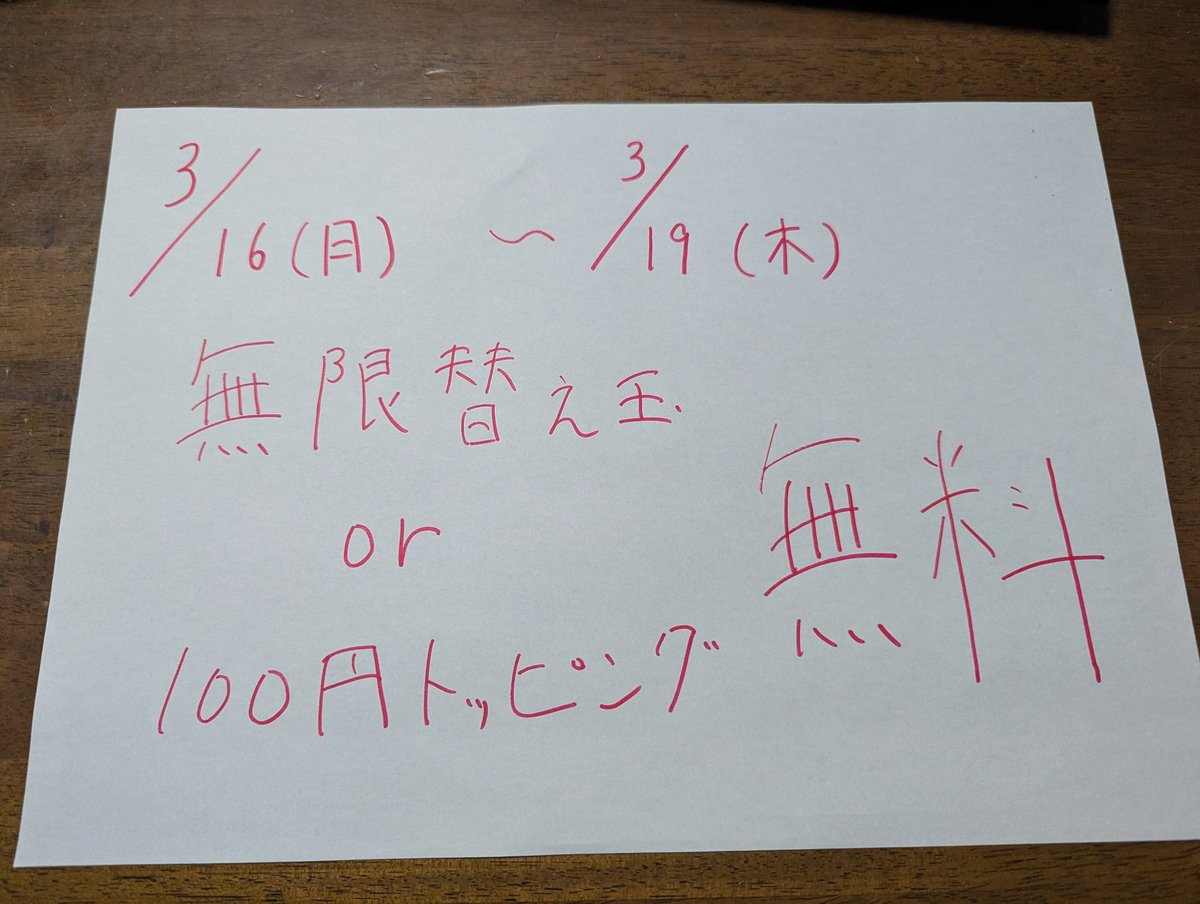 3/16(月) 〜 3/19(木)
無限替え玉
or
100円トッピング
無料